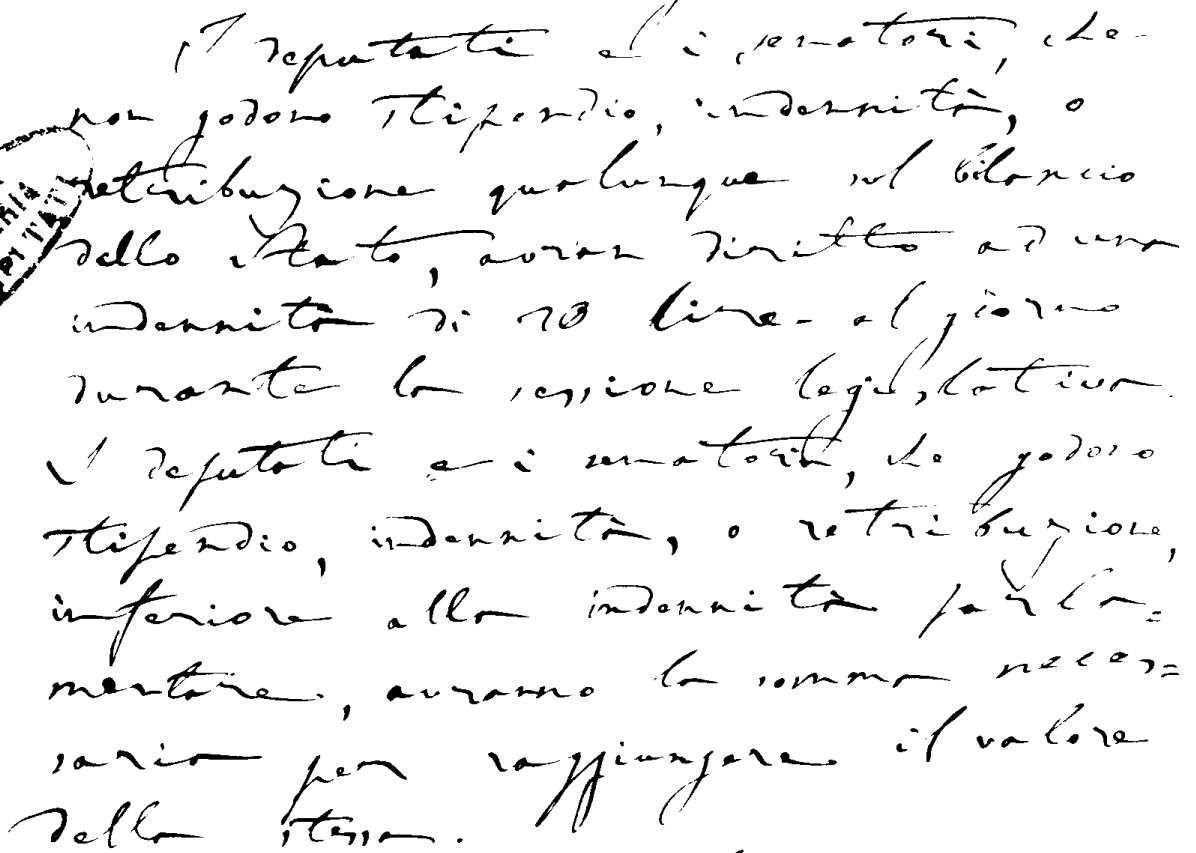 I deputati e i senatori, che
non godono stipendio, indennità, o
retribuzione qualunque sul bilancio
dello Stato, avran diritto ad una
indennità di lire al giorno
durante la sessione legislativa.
I deputati e i senatori, che godono
stipendio, indennità, o retribuzione,
inferiore alla indennità parla=
mentare, avranno la somma neces=
saria per raggiungere il valore
della stessa.